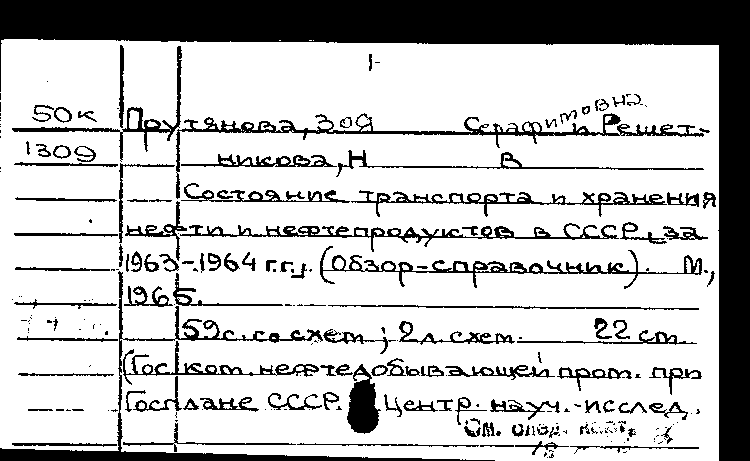 1-
50к Прутянова, Зоя Серафимовна и Решет-
1309 никова, Н В
Состояние транспорта и хранения
нефти и нефтепродуктов в СССР за
1963-1964 г.г. (Обзор-справочник). М.,
1965.
59с. со схем; 2 л. схем. 22 см.
(Гос ком. нефтедобывающей пром. при
Госплане СССР. Центр. науч.-исслед.
См. след. карт.
18